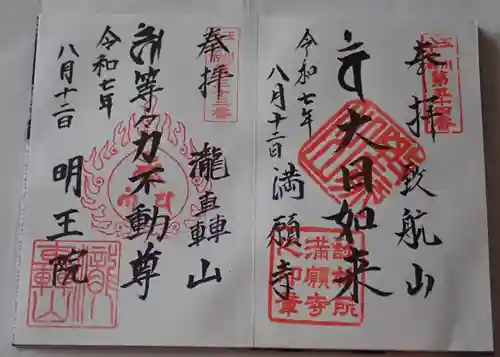 奉拝 致航山
大日如来
満願寺
令和七年
八月十二日
満願寺
奉拝 瀧轟山
等々力不動尊
明王院
令和七年
八月十二日
瀧轟山